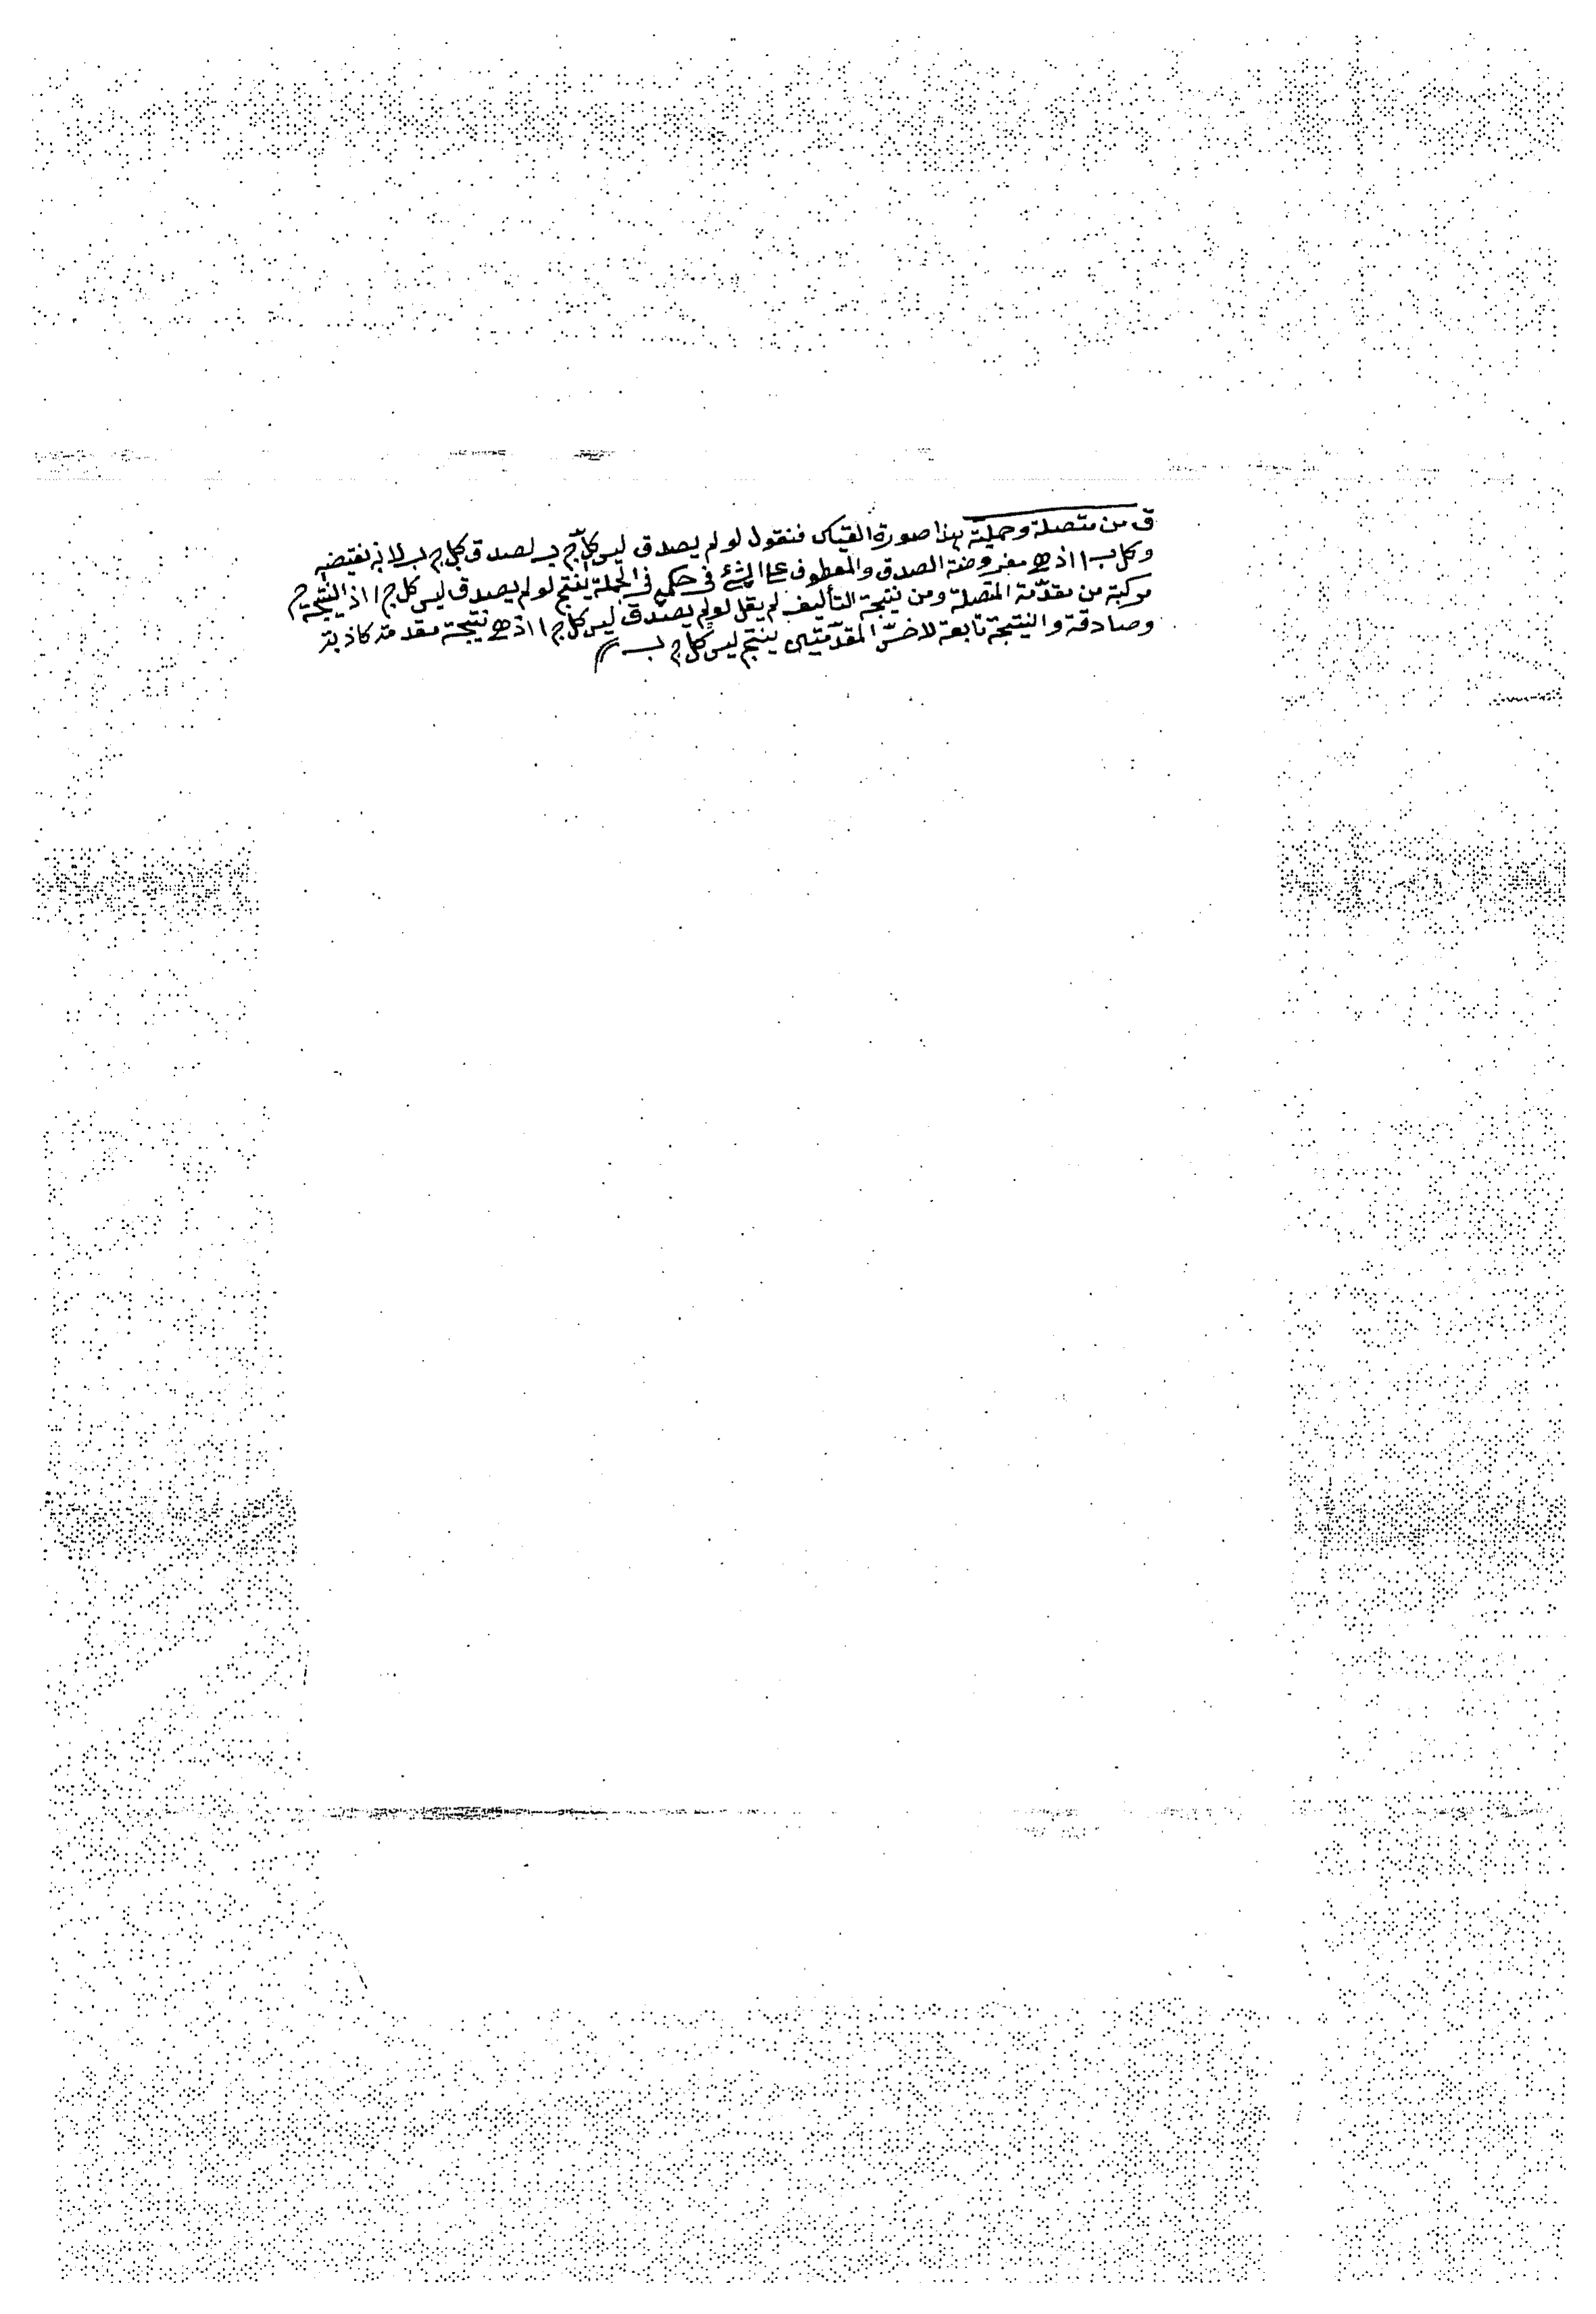 ق من متصلة وحملية بهذا صورة القياس فنقول لو لم يصدق ليس كل ج ب لصدق كل ج ب لانه نقيضه
وكل ب ا اذ هى مفروضة الصدق والمعطوف على الشئ فى حكمه فى الجملة ينتج لو لم يصدق ليس كل ج ا اذ النتيجة ح
مركبة من مقدمة المتصلة ومن نتيجة التأليف لم يقل لو لم يصدق ليس كل ج ا اذ هى نتيجة مقدمة كاذبة
وصادقة والنتيجة تابعة لاخس المقدمتين ينتج ليس كل ج ب